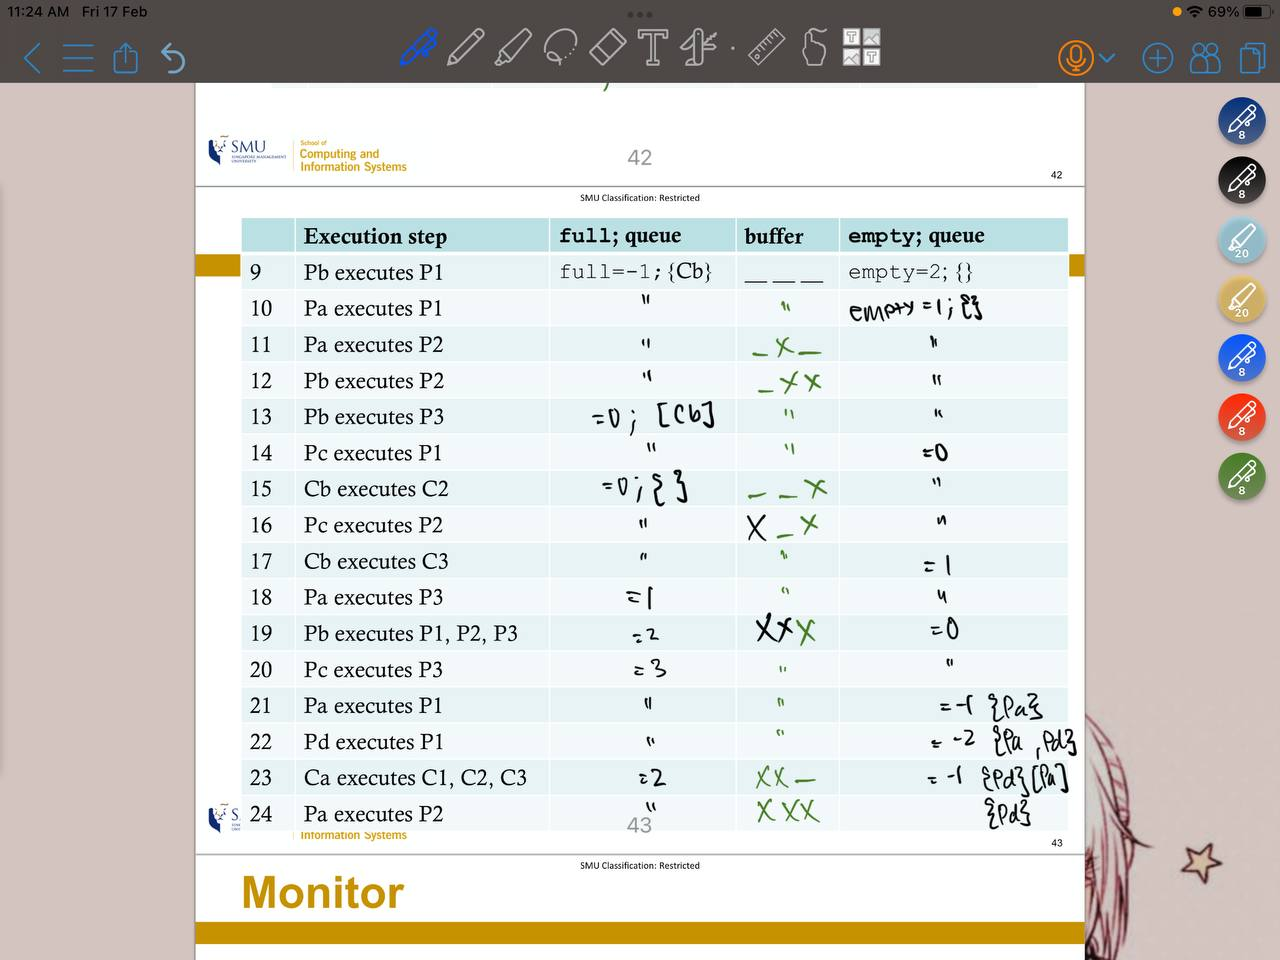 11:24 AM Fri 17 Feb 69%
SMU
SINGAPORE MANAGEMENT
UNIVERSITY
School of
Computing and
Information Systems
42
42
SMU Classification: Restricted
Execution step full; queue buffer empty; queue
9 Pb executes P1 full=-1; {Cb} __ __ __ empty=2; {}
10 Pa executes P1 " " empty=1;{}
11 Pa executes P2 " _X_ "
12 Pb executes P2 " _XX "
13 Pb executes P3 =0; [Cb] " "
14 Pc executes P1 " " =0
15 Cb executes C2 =0;{} _ _X "
16 Pc executes P2 " X_X "
17 Cb executes C3 " " =1
18 Pa executes P3 =1 " "
19 Pb executes P1, P2, P3 =2 XXX =0
20 Pc executes P3 =3 " "
21 Pa executes P1 " " =-1 {Pa}
22 Pd executes P1 " " =-2 {Pa,Pd}
23 Ca executes C1, C2, C3 =2 XX_ =-1 {Pd}[Pa]
24 Pa executes P2 " XXX {Pd}
S
Information Systems
43
43
SMU Classification: Restricted
Monitor
8
8
20
20
8
8
8